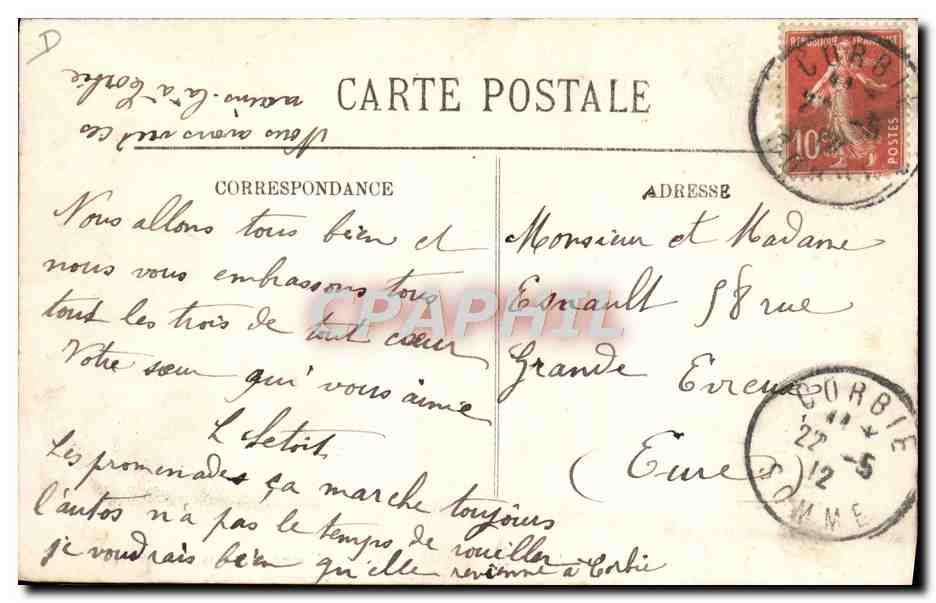 D
CARTE POSTALE
RÉPUBLIQUE FRANÇAISE
10
POSTES
CORBIE
SOMME
Nous avons vu ces
mains-là à Corbie
CORRESPONDANCE
Nous allons tous bien et
nous vous embrassons tous
tout les trois de tout cœur
Votre sœur qui vous aime
L Letoit
Les promenades ça marche toujours
l'autos n'a pas le temps de rouiller
je voudrais bien qu'elle revienne à Corbie
ADRESSE
Monsieur et Madame
Esnault 58 rue
Grande Evreux
(Eure)
CORBIE
22 -5
12
SOMME
CPAPHIL